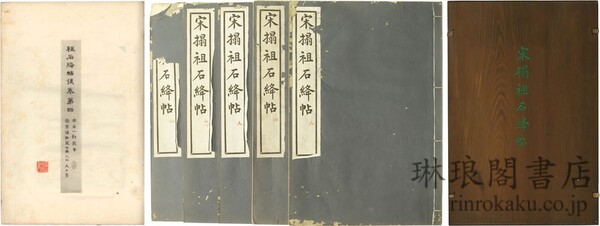 祖石絳帖後卷第四
石絳帖
宋搨祖石絳帖
宋搨祖石絳帖
宋搨祖石絳帖
宋搨祖石絳帖
琳琅閣書店
rinrokaku.co.jp